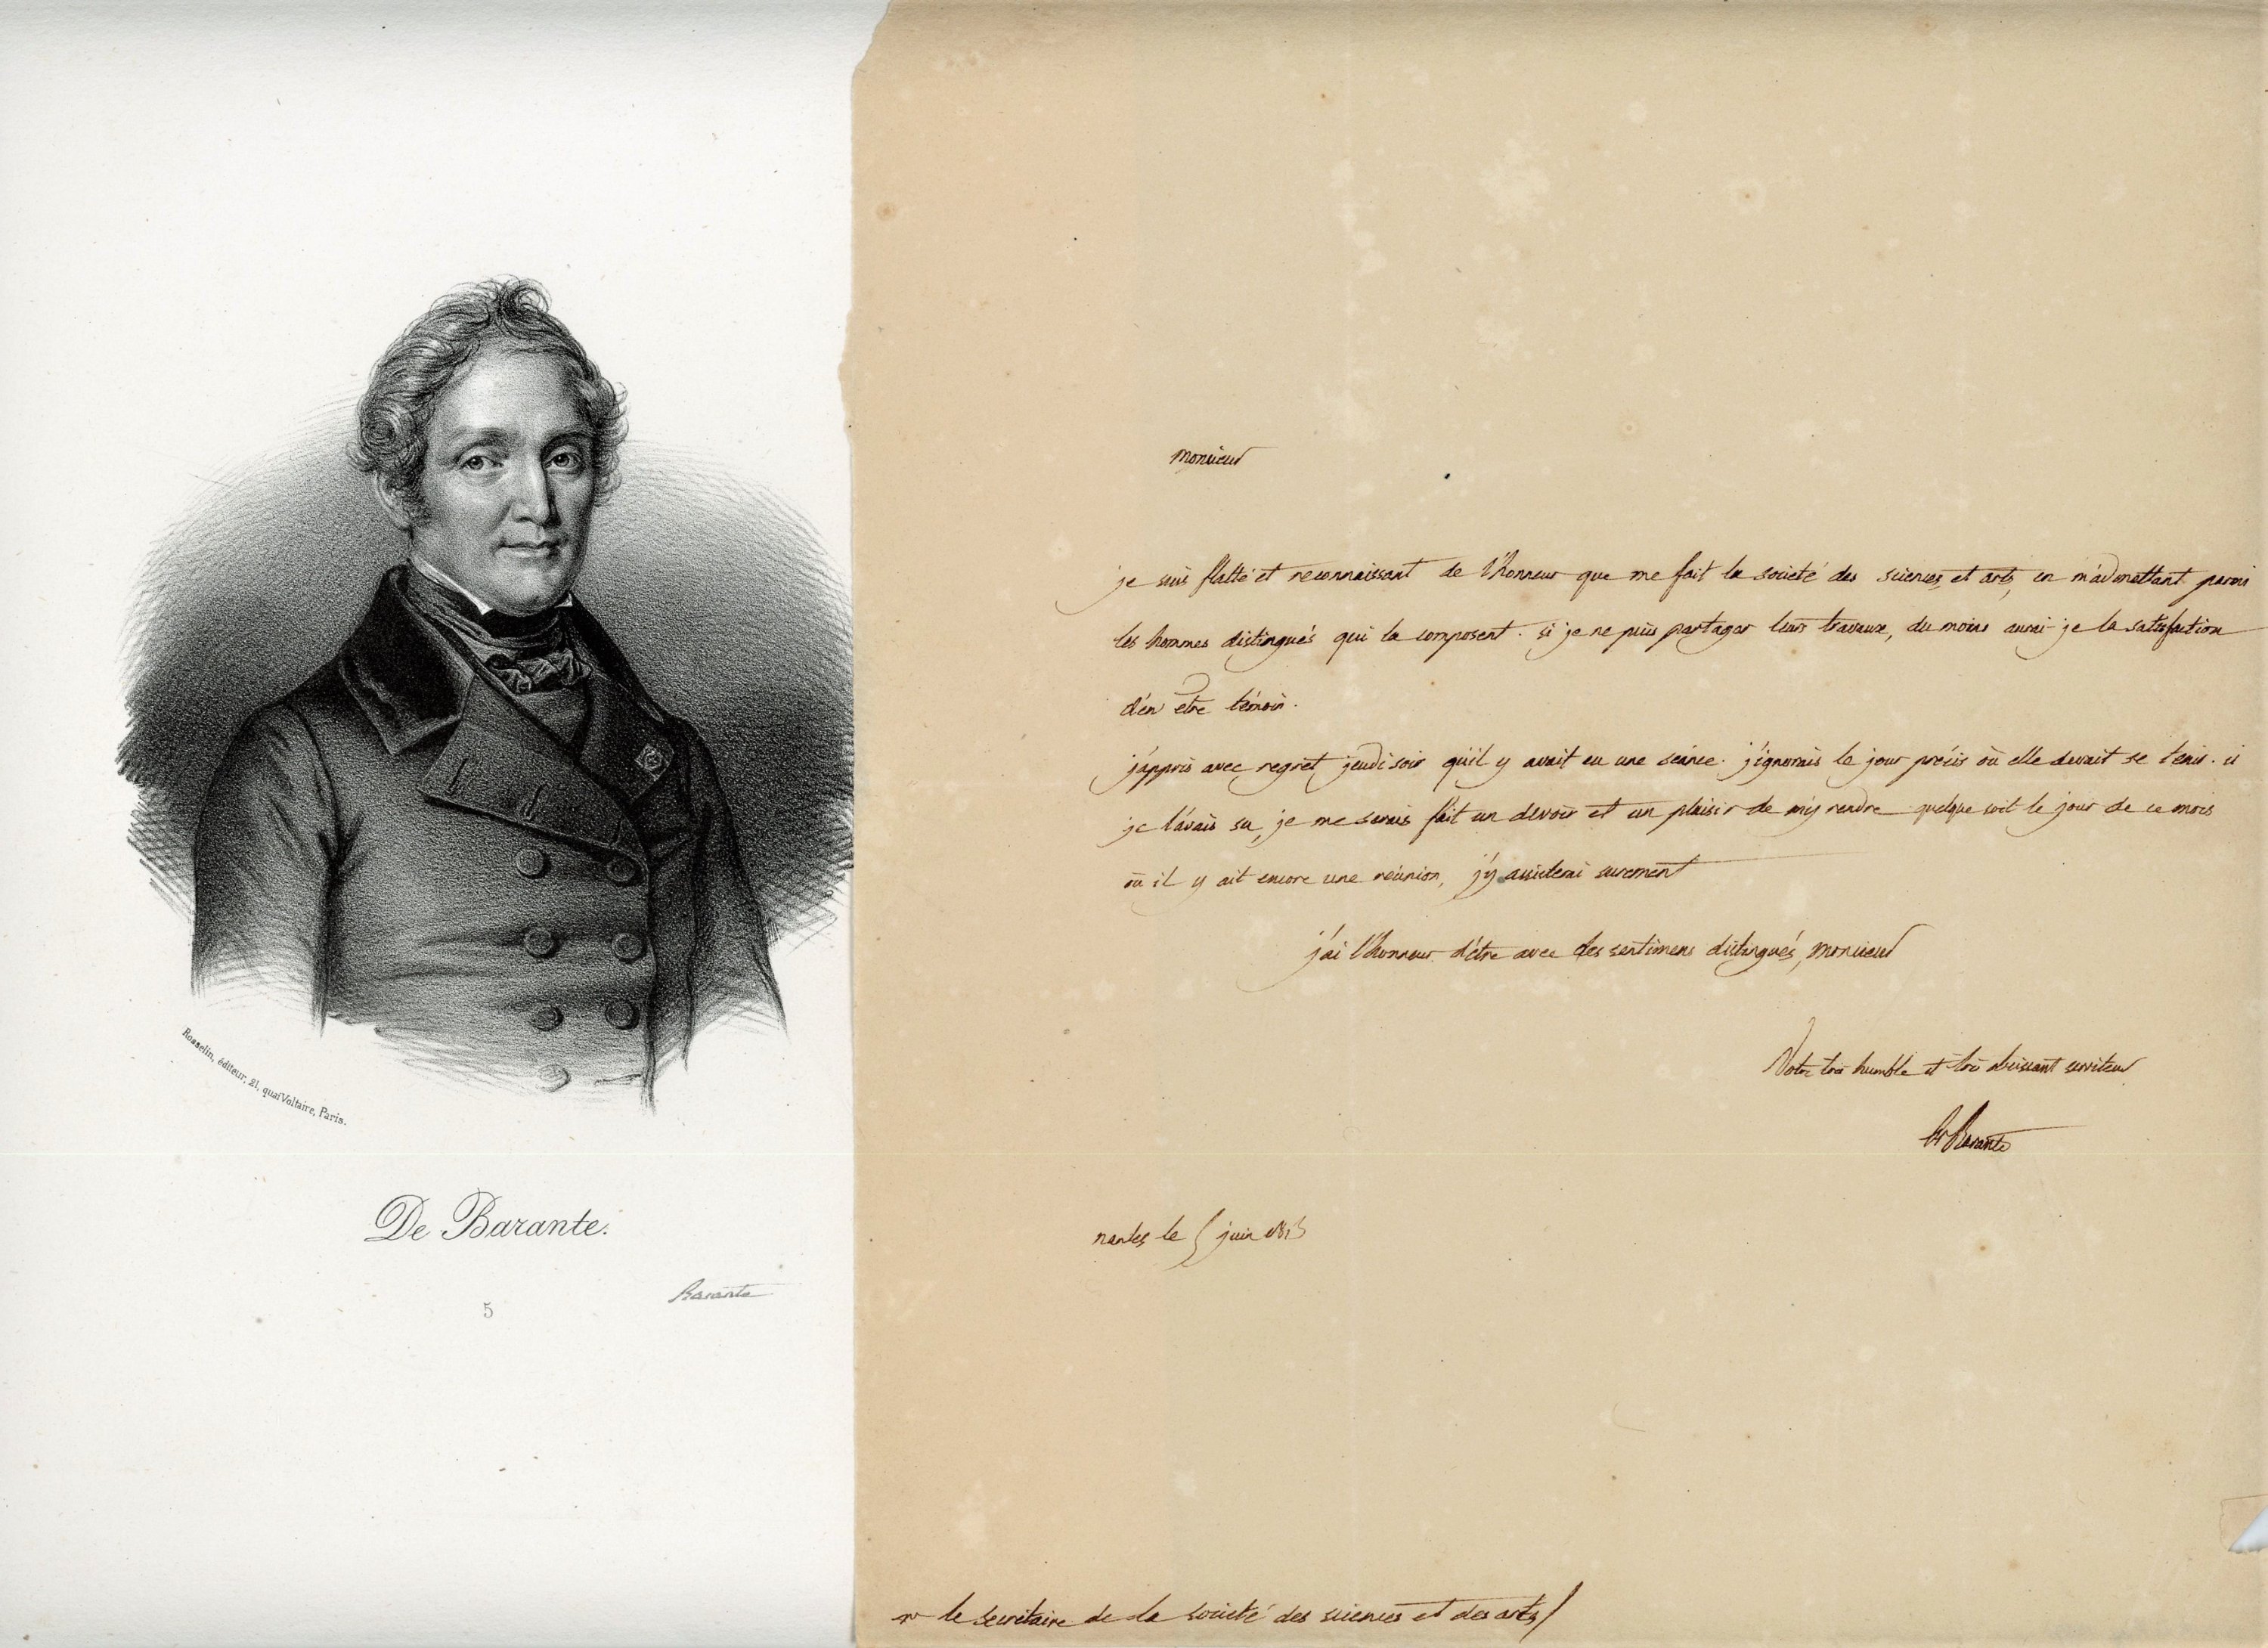 Rosselin, éditeur, 21, quai Voltaire, Paris.
De Barante.
Barante
5
monsieur
je suis flatté et reconnaissant de l'honneur que me fait la societé des sciences et arts, en m'admettant parmi
les hommes distingués qui la composent. si je ne puis partager leurs travaux, du moins aurai-je la satisfaction
d'en etre témoin.
j'appris avec regret jeudi soir qu'il y avait eu une séance. j'ignorais le jour précis où elle devait se tenir. si
je l'avais su, je me serais fait un devoir et un plaisir de m'y rendre quelque soit le jour de ce mois
où il y ait encore une réunion, j'y assisterai surement
j'ai l'honneur d'etre avec des sentimens distingués, monsieur
Votre très humble et très obeissant serviteur
Barante
nantes le 5 juin
mr le secrétaire de la societé des sciences et des arts/